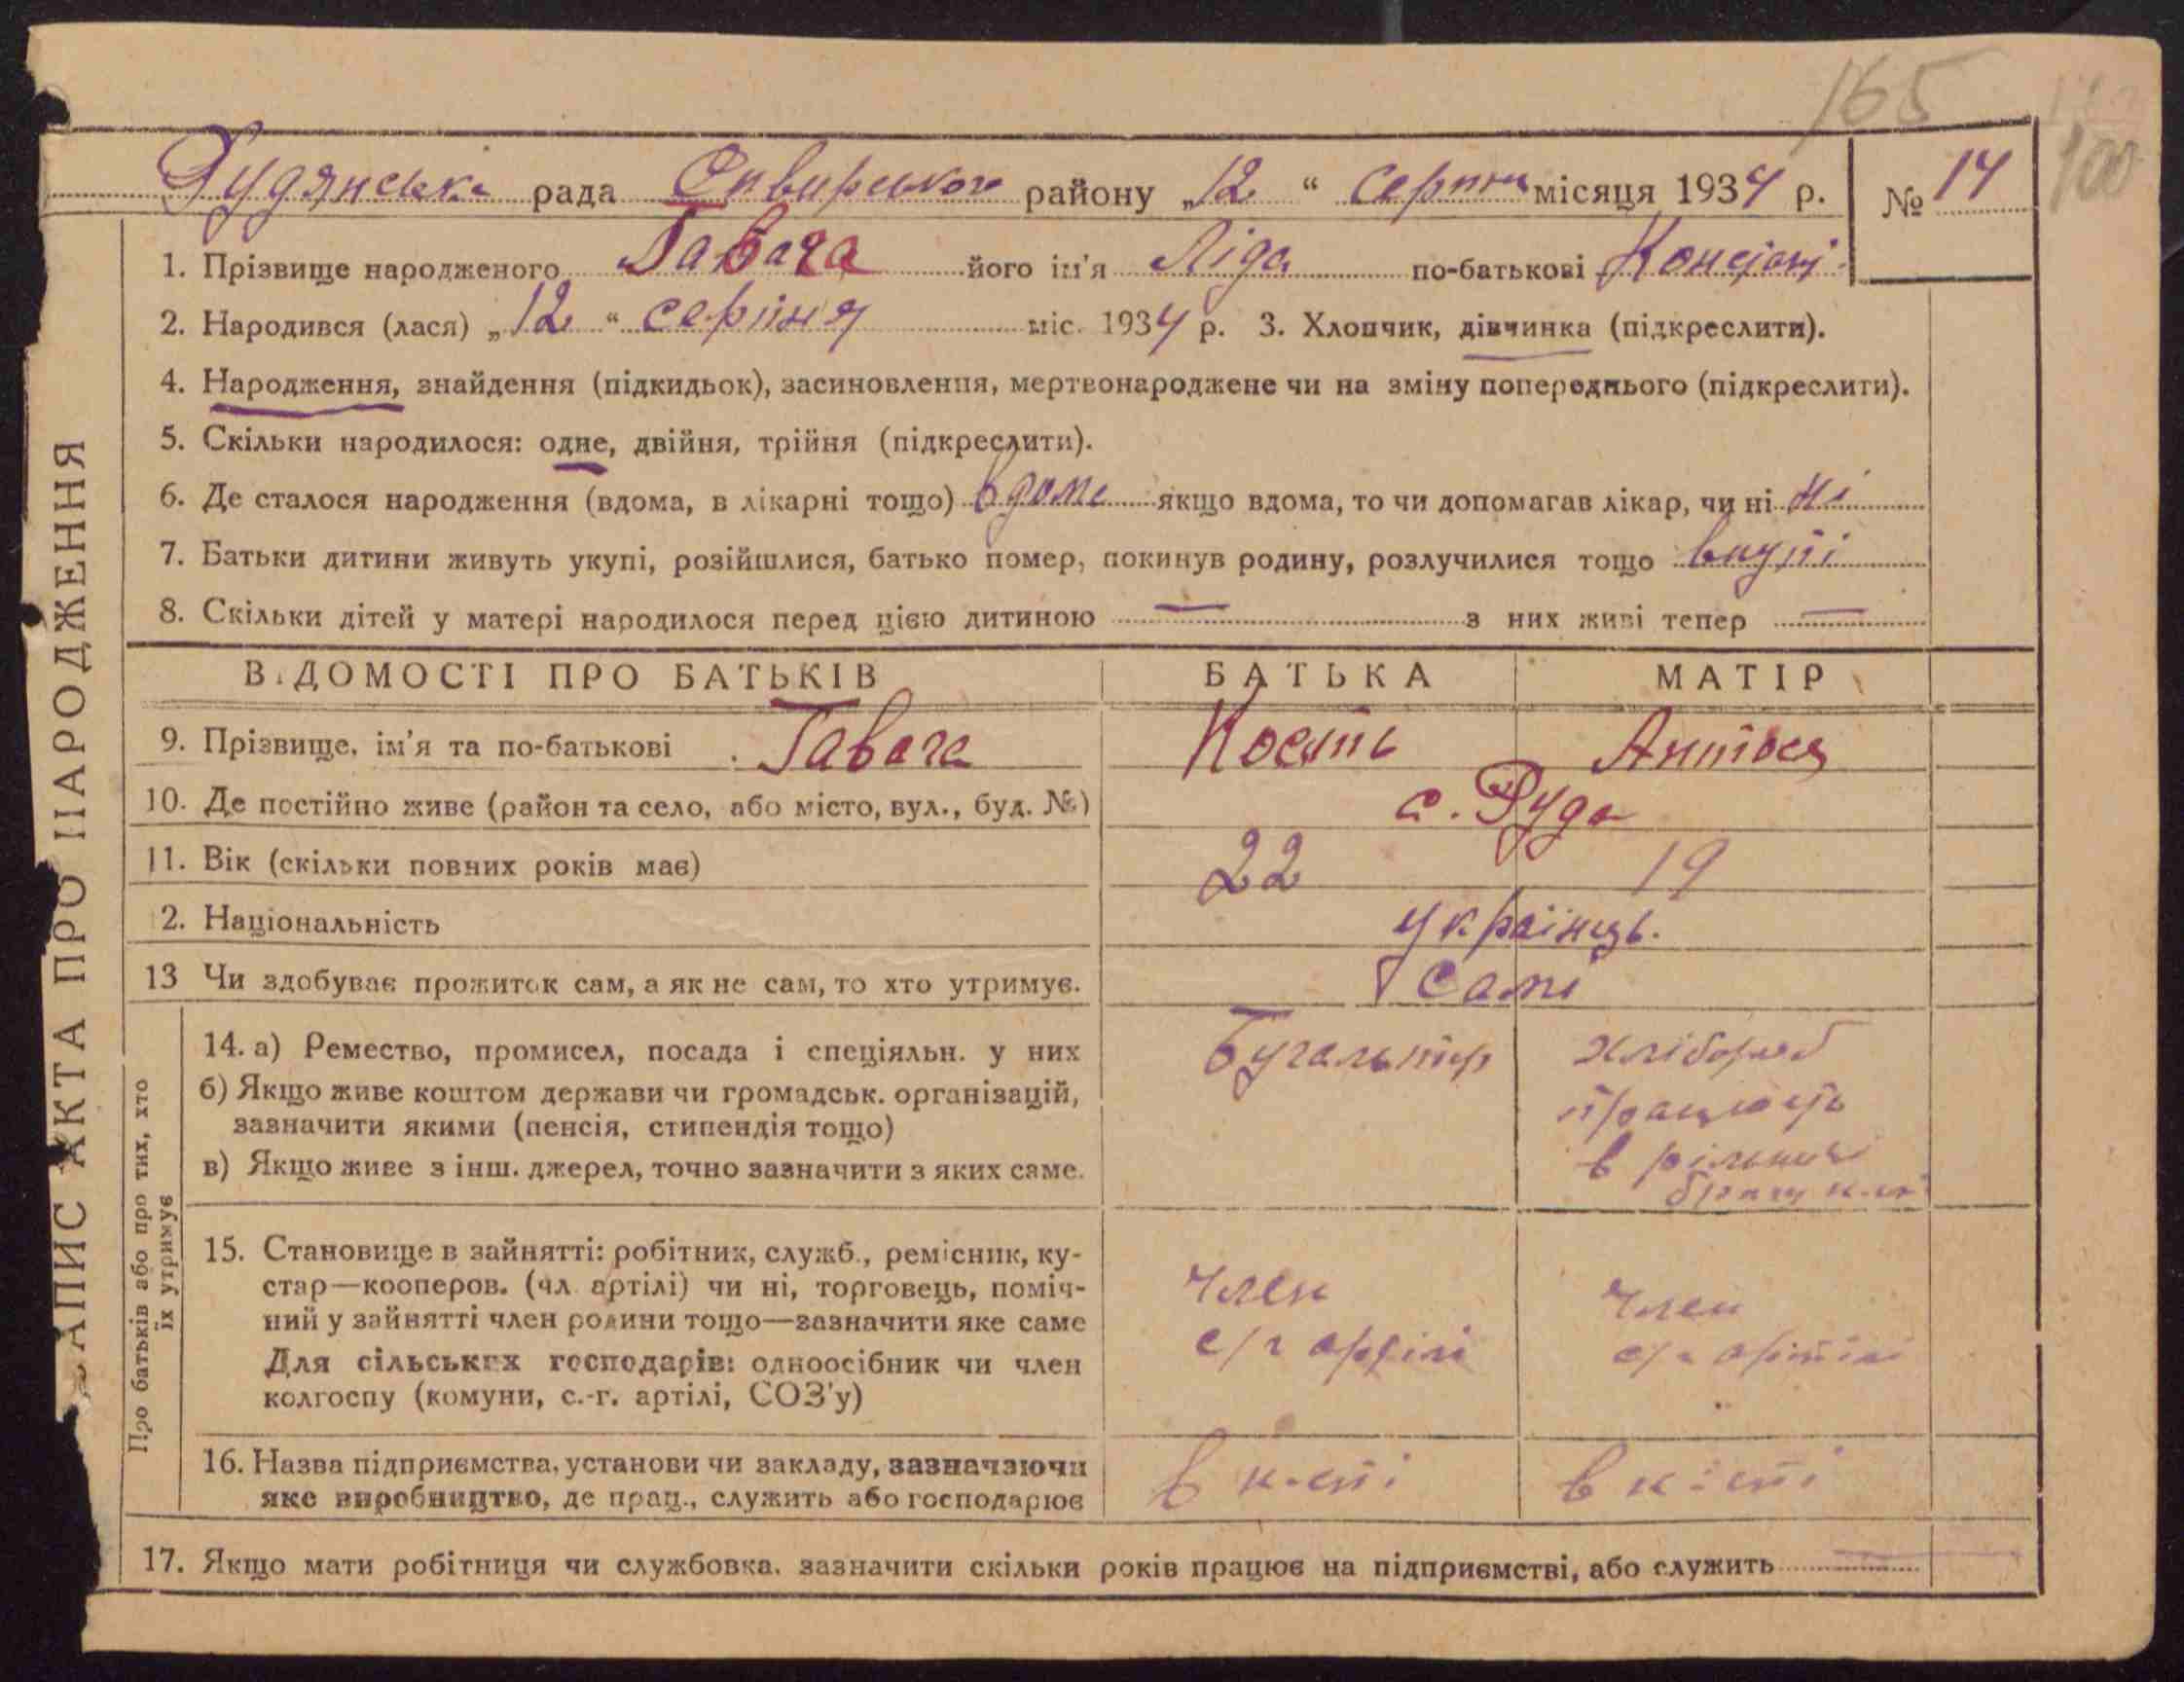 165
100
Рудянська рада Сквирського району „12“ серпня місяця 1934 р. № 14
1. Прізвище народженого Гавага його ім'я Ліда по-батькові
2. Народився (лася) „12“ серпня міс. 1934 р. 3. Хлопчик, дівчинка (підкреслити).
4. Народження, знайдення (підкидьок), засиновлення, мертвонароджене чи на зміну попереднього (підкреслити).
5. Скільки народилося: одне, двійня, трійня (підкреслити).
6. Де сталося народження (вдома, в лікарні тощо) вдома якщо вдома, то чи допомагав лікар, чи ні ні
7. Батьки дитини живуть укупі, розійшлися, батько помер, покинув родину, розлучилися тощо вкупі
8. Скільки дітей у матері народилося перед цією дитиною — з них живі тепер —
ВІДОМОСТІ ПРО БАТЬКІВ БАТЬКА МАТІР
9. Прізвище, ім'я та по-батькові Гавага Кость Антося
10. Де постійно живе (район та село, або місто, вул., буд. №) с. Руда
11. Вік (скільки повних років має) 22 19
2. Національність українць.
13 Чи здобуває прожиток сам, а як не сам, то хто утримує. Самі
Про батьків або про тих, хто
їх утримує
14. а) Ремество, промисел, посада і спеціяльн. у них Бугальтер хлібороб
б) Якщо живе коштом держави чи громадськ. організацій, працюють
зазначити якими (пенсія, стипендія тощо)
в) Якщо живе з інш. джерел, точно зазначити з яких саме. в рільничі
15. Становище в зайнятті: робітник, служб., ремісник, ку-
стар—кооперов. (чл. артілі) чи ні, торговець, поміч- Член Член
ний у зайнятті член родини тощо—зазначити яке саме с/г артілі с/г артілі
Для сільських господарів: одноосібник чи член
колгоспу (комуни, с.-г. артілі, СОЗ'у)
16. Назва підприємства, установи чи закладу, зазначаючи в к-сті в к-сті
яке виробництво, де прац., служить або господарює
17. Якщо мати робітниця чи службовка, зазначити скільки років працює на підприємстві, або служить —
ЗАПИС АКТА ПРО НАРОДЖЕННЯ